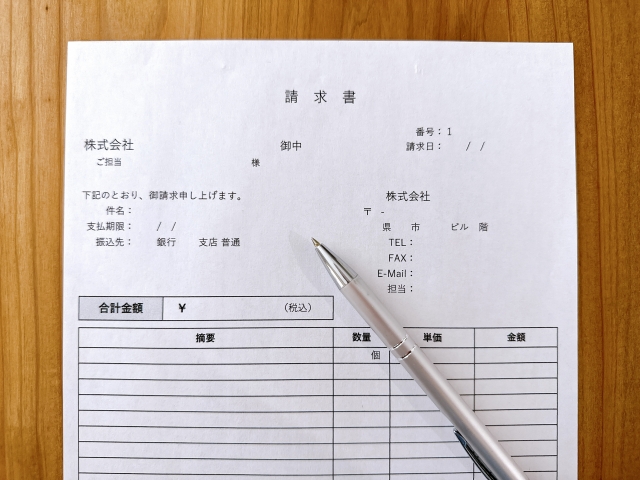 請 求 書
番号： 1
株式会社 御中 請求日： / /
ご担当 様
下記のとおり、御請求申し上げます。 株式会社
件名： 〒 -
支払期限： / / 県 市 ビル 階
振込先： 銀行 支店 普通 TEL：
FAX：
E-Mail：
担当：
合計金額 ￥ (税込)
摘要 数量 単価 金額
個